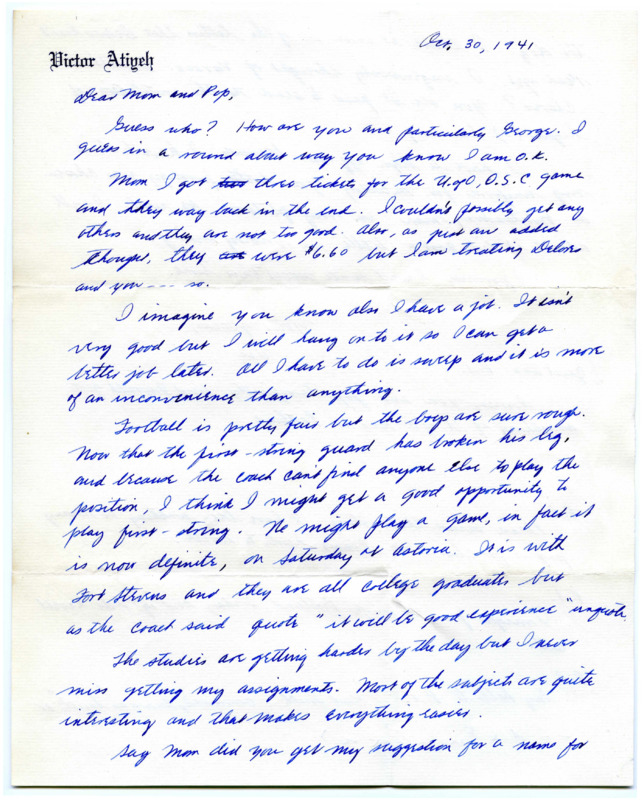 Victor Atiyeh
Oct. 30, 1941
Dear Mom and Pop,
Guess who? How are you and particularly George. I
guess in a round about way you know I am O.K.
Mom I got three tickets for the U.of O, O.S.C game
and they way back in the end. I couldn't possibly get any
others and they are not too good. Also, as just an added
thought, they were $6.60 but I am treating Delores
and you --- so.
I imagine you know also I have a job. It isn't
very good but I will hang on to it so I can get a
better job later. All I have to do is sweep and it is more
of an inconvenience than anything.
Football is pretty fair but the boys are sure rough.
Now that the first-string guard has broken his leg,
and because the coach can't find anyone else to play the
position, I think I might get a good opportunity to
play first-string. We might play a game, in fact it
is now definite, on Saturday at Astoria. It is with
Fort Stevens and they are all college graduates but
as the coach said quote "it will be good experience" unquote.
The studies are getting harder by the day but I never
miss getting my assignments. Most of the subjects are quite
interesting and that makes everything easier.
Say Mom did you get my suggestion for a name for